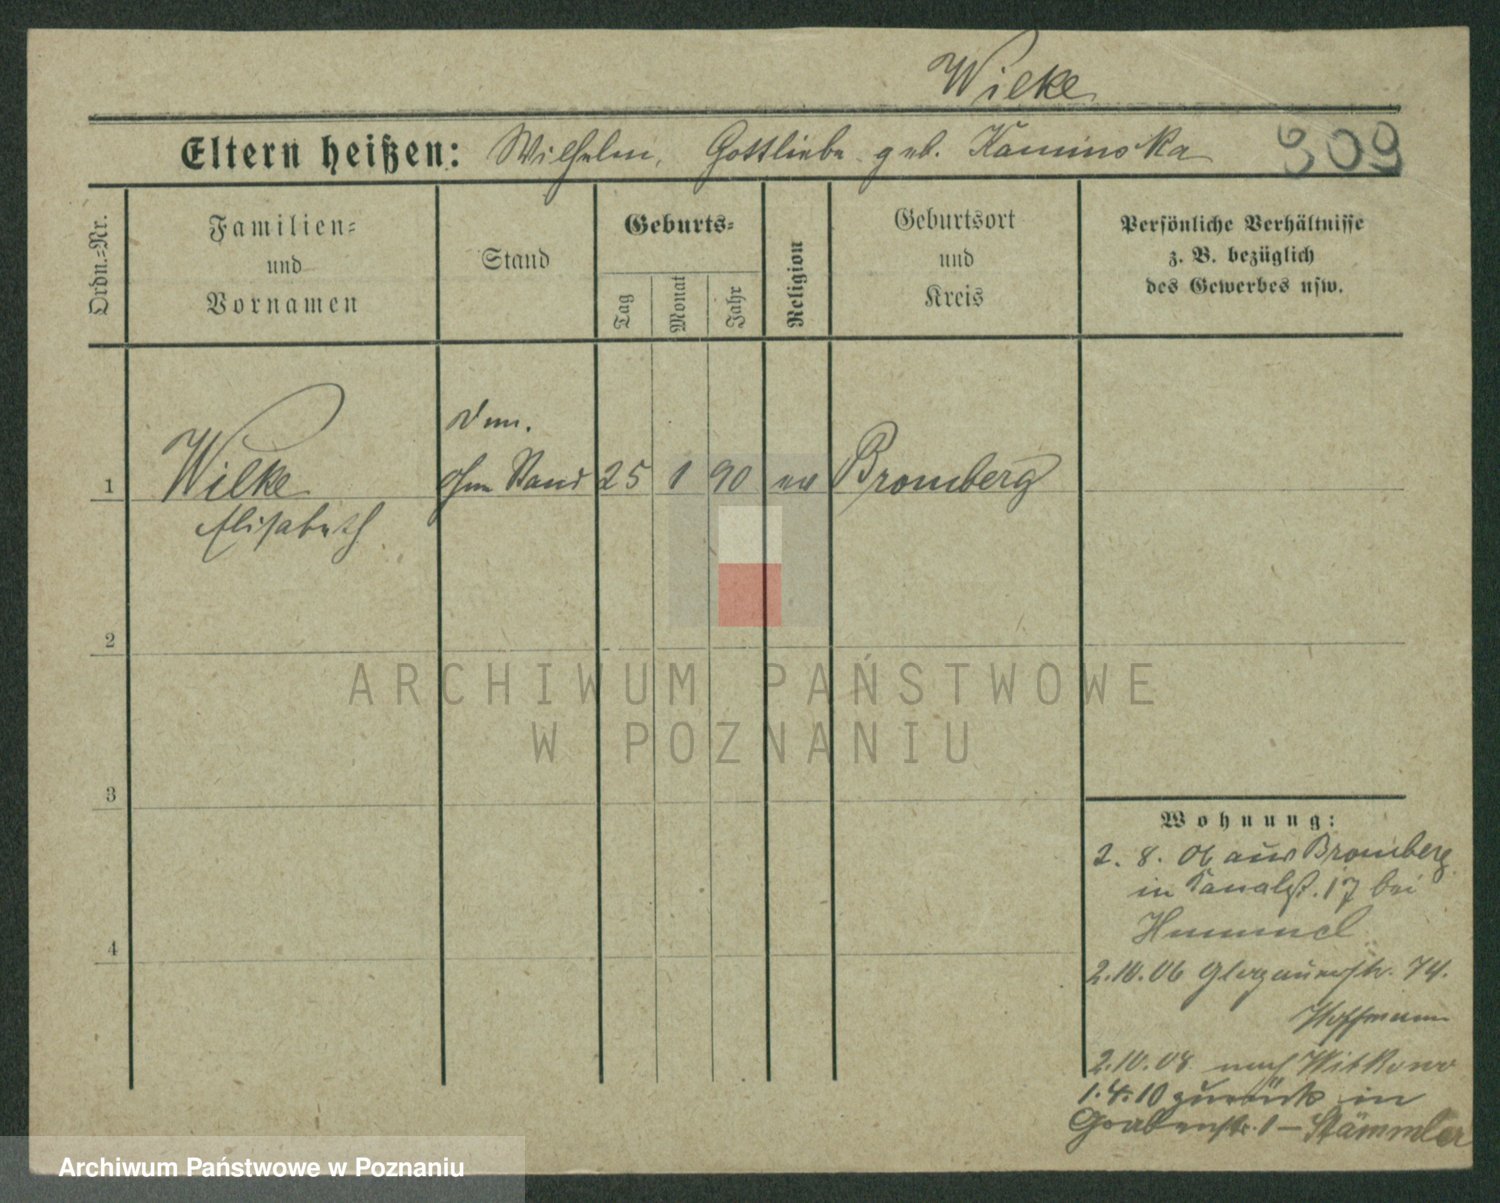 Wilke
Eltern heißen: Wilhelm, Gottliebe geb. Kaminska 309
Ordn.-Nr.
Familien-
und
Vornamen
Stand
Geburts-
Tag
Monat
Jahr
Religion
Geburtsort
und
Kreis
Persönliche Verhältnisse
z. B. bezüglich
des Gewerbes usw.
1 Wilke ohne Stand 25 1 90 ev Bromberg
Elisabeth
2
3
4
ARCHIWUM PAŃSTWOWE
W POZNANIU
Wohnung:
2. 8. 06 aus Bromberg
in Kanalst. 17 bei
2.10.06 Glogauerstr. 74.
Hoffmann
2.10.08 nach Witkowo
1.4.10 zurück in
Grabenstr. 1 – Stämmler
Archiwum Państwowe w Poznaniu